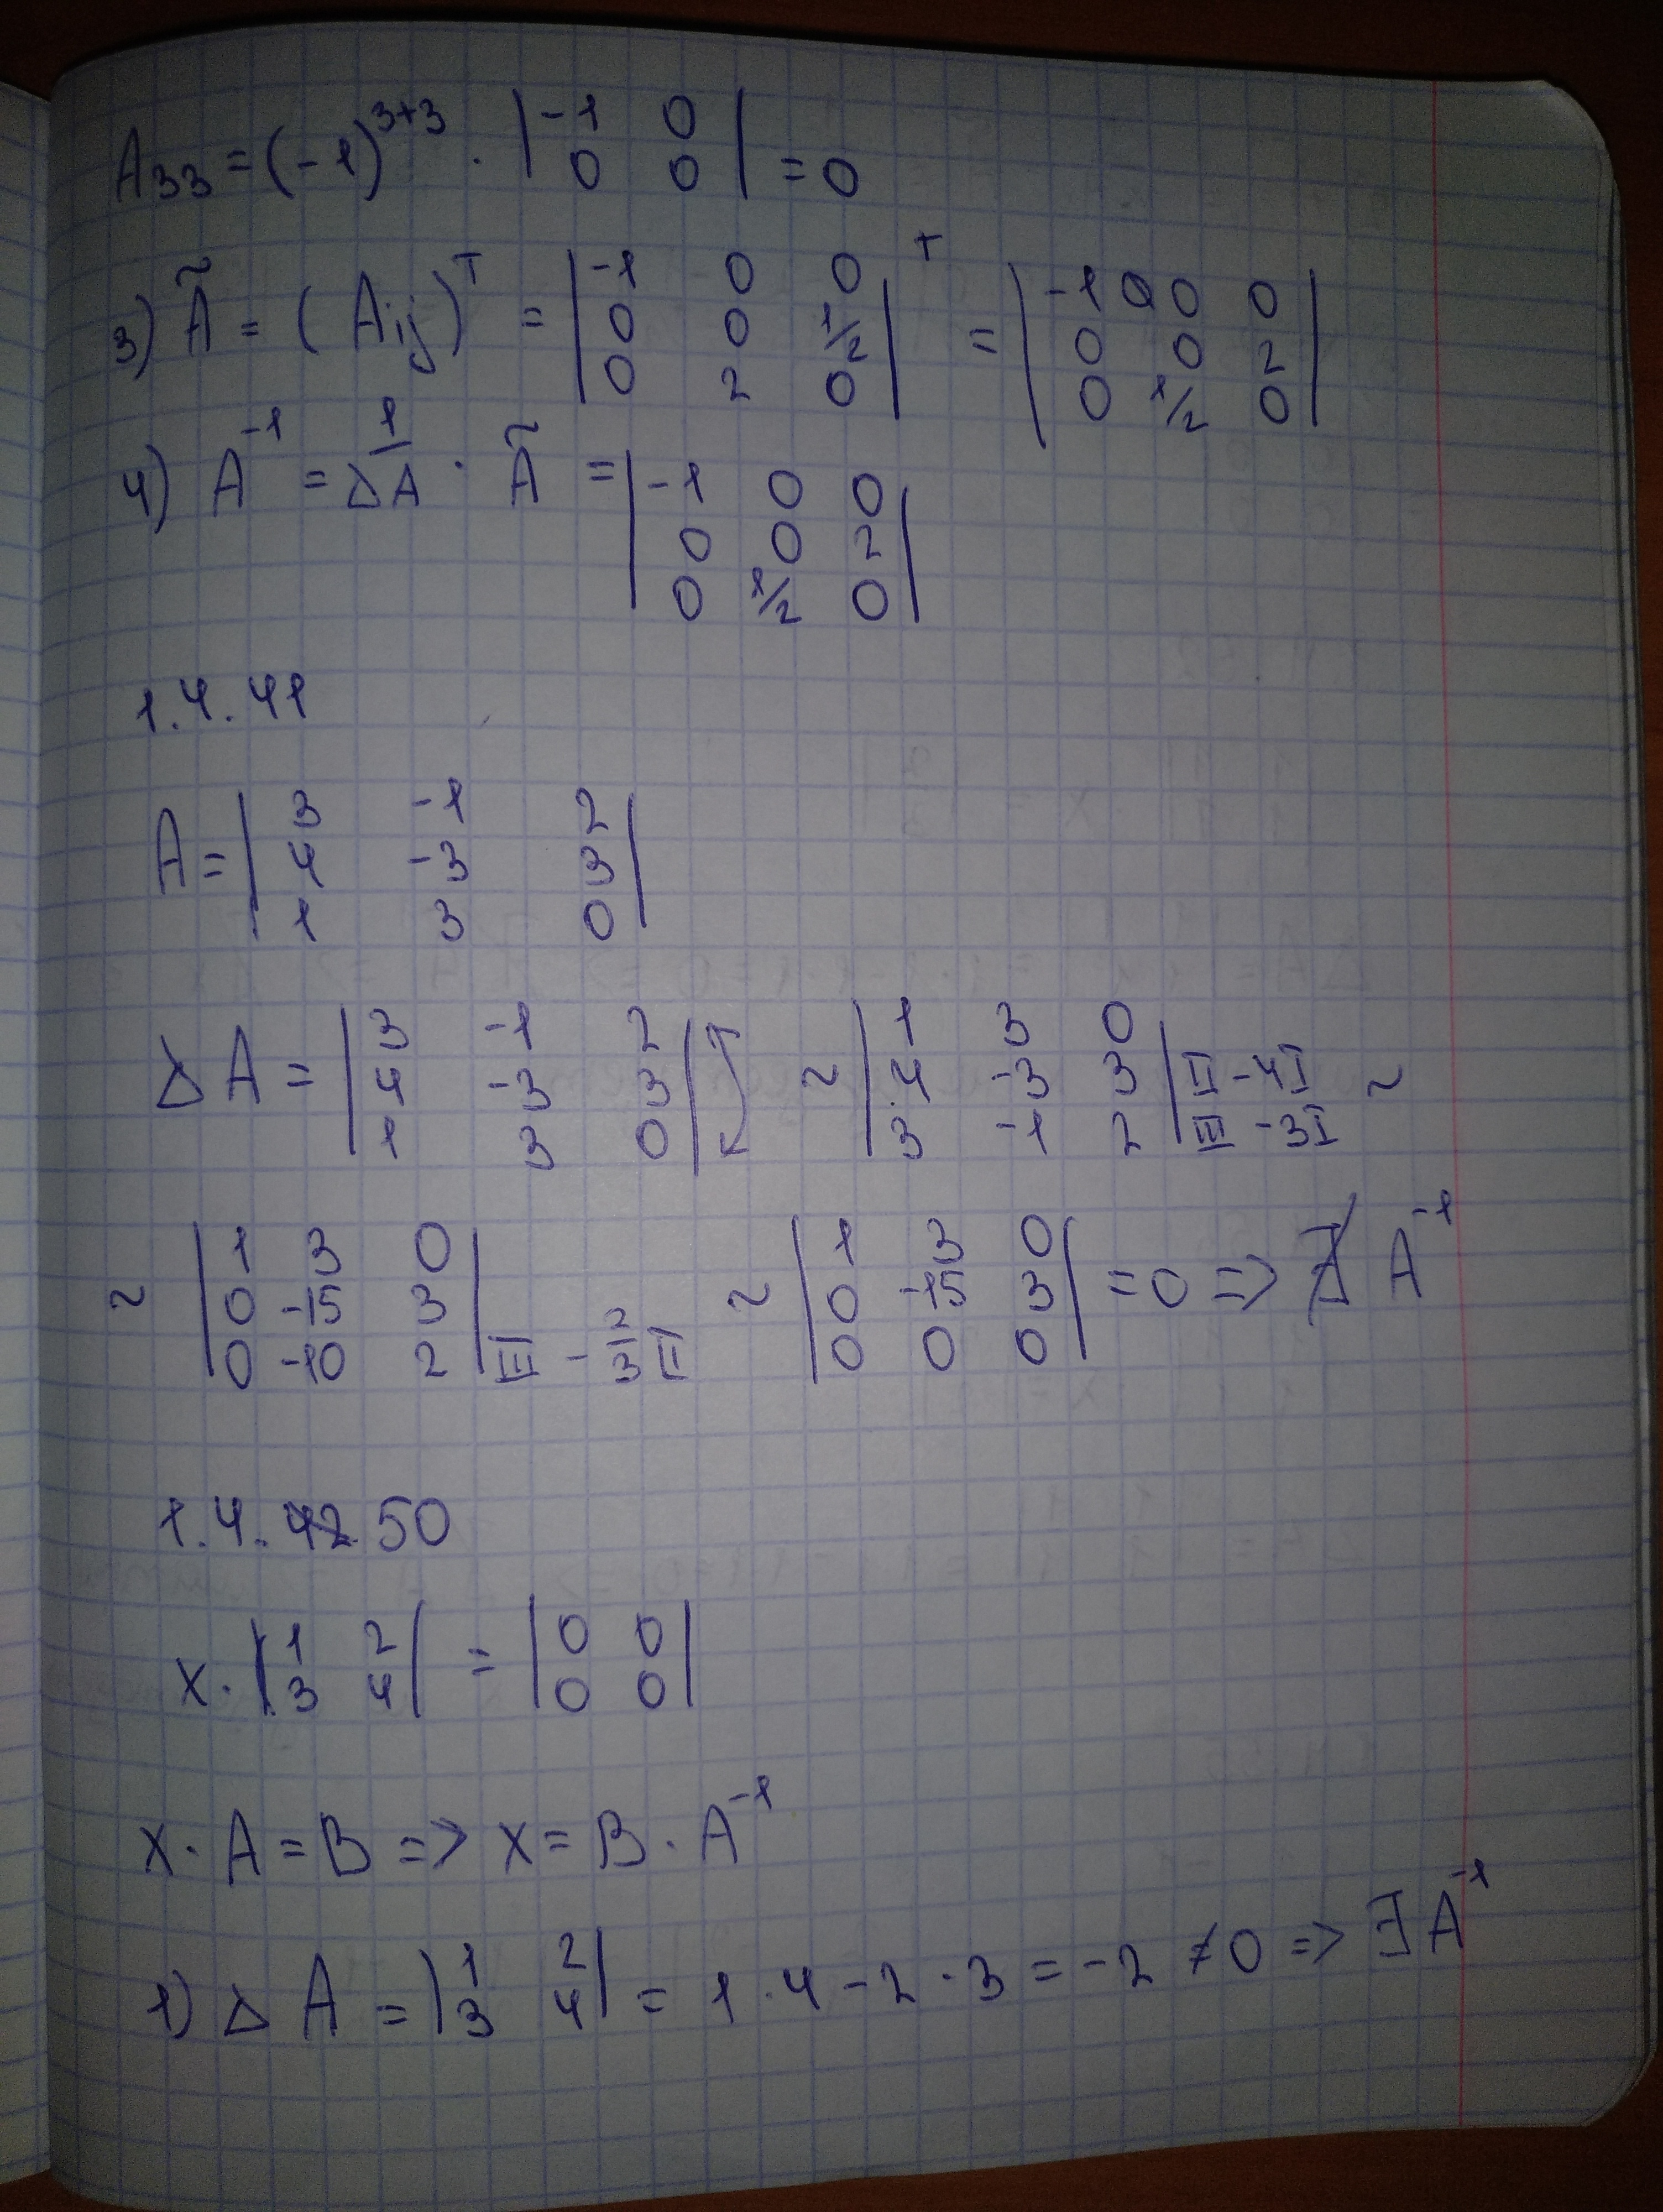 A₃₃ = (-1)³⁺³ · |-1 0; 0 0| = 0
3) Ã = (Aij)ᵀ = |-1 0 0; 0 0 1/2; 0 2 0|ᵀ = |-1 0 0; 0 0 2; 0 1/2 0|
4) A⁻¹ = 1/ΔA · Ã = |-1 0 0; 0 0 2; 0 1/2 0|
1.4.41
A = |3 -1 2; 4 -3 3; 1 3 0|
ΔA = |3 -1 2; 4 -3 3; 1 3 0| ~ |1 3 0; 4 -3 3; 3 -1 2| II -4I III -3I ~
~ |1 3 0; 0 -15 3; 0 -10 2| III - 2/3 II ~ |1 3 0; 0 -15 3; 0 0 0| = 0 => ∄ A⁻¹
1.4.50
x · |1 2; 3 4| = |0 0; 0 0|
x · A = B => x = B · A⁻¹
1) Δ A = |1 2; 3 4| = 1 · 4 - 2 · 3 = -2 ≠ 0 => ∃ A⁻¹